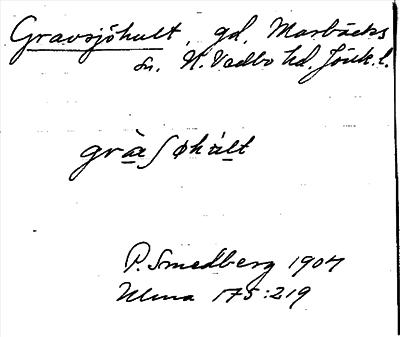 Gravsjöhult, gd, Marbäcks
sn. N. Vedbo hd. Jönk. l.
gràʃøhált
P. Smedberg 1907
Ulma 175:219